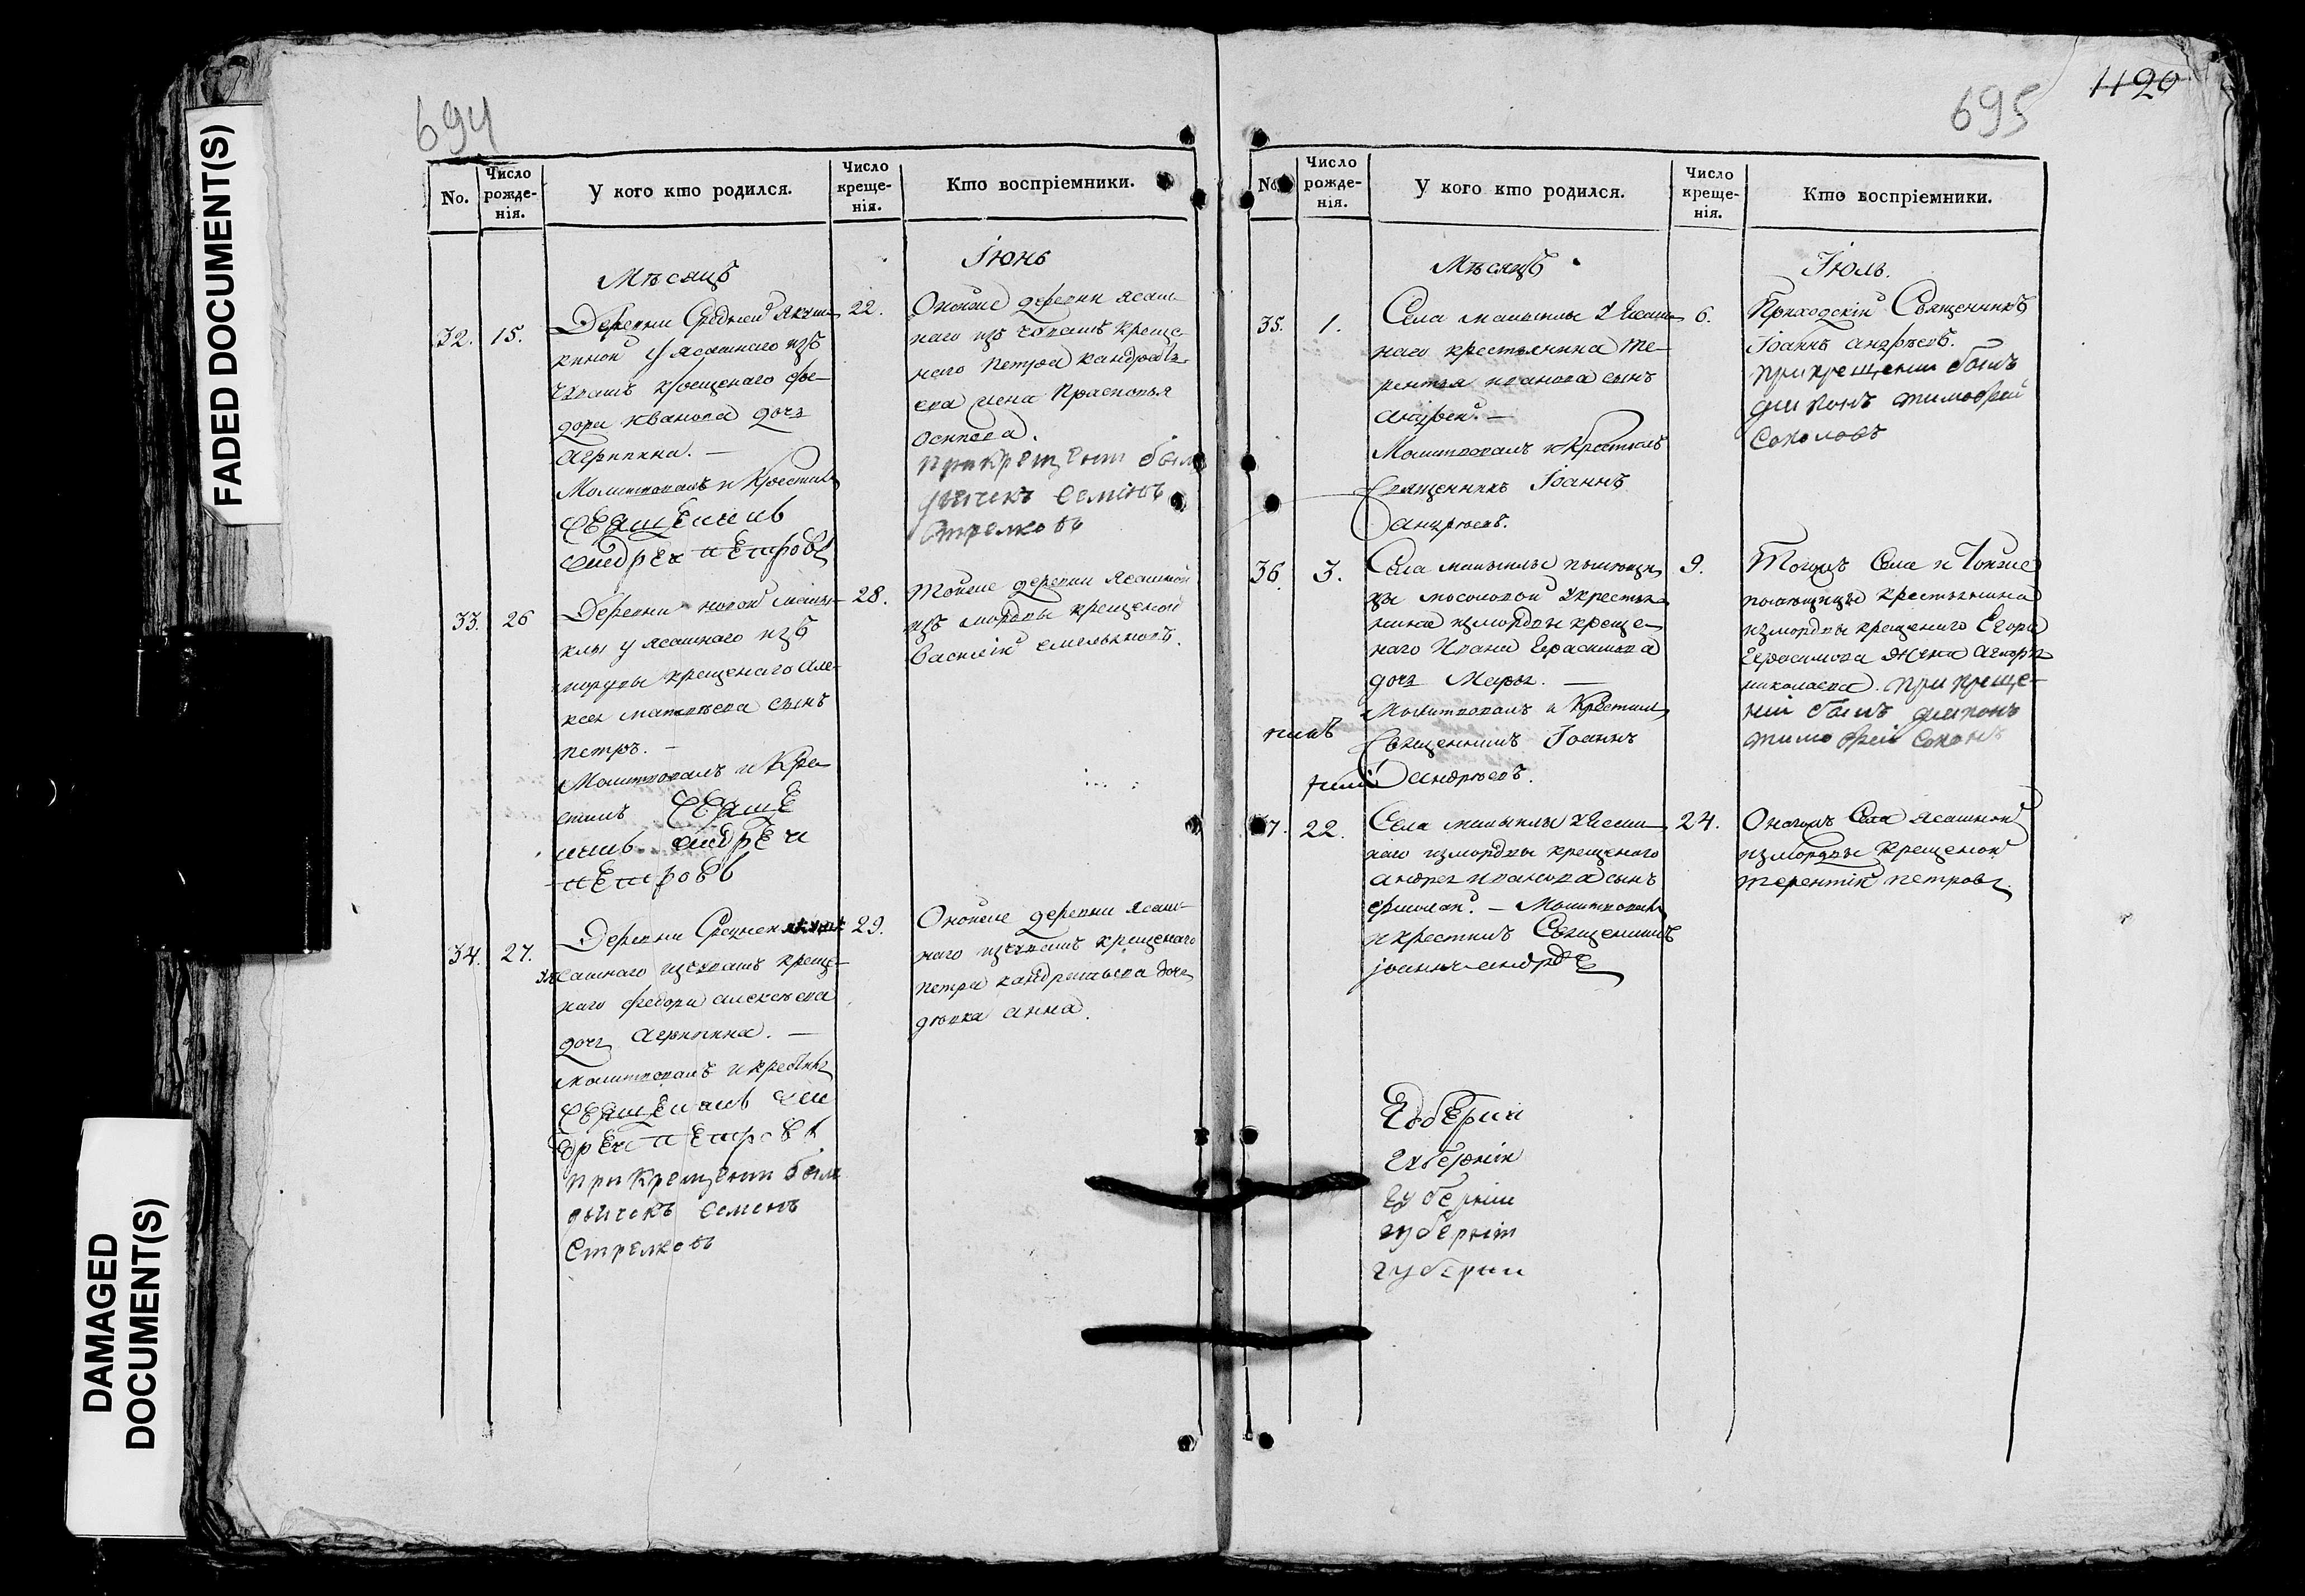 FADED DOCUMENT(S)
DAMAGED
DOCUMENT(S)
694
No.
Число
рожде-
нія.
У кого кто родился.
Число
креще-
нія.
Кто воспріемники.
Мѣсяцъ
Іюнь
32.
15.
Деревни Средней
киной у ясашнаго изъ
чувашъ крещенаго Фе-
дора Иванова дочь
Агрипина. —
Молитвовалъ и Крестилъ
Священникъ
Андрей Петровъ
22.
Оной же деревни ясаш-
наго изъ чувашъ креще-
наго Петра Кандрать-
ева жена Прасковья
Осипова.
При крещении былъ
дьячекъ Семенъ
Стрелковъ
33.
26
Деревни новой
клы у ясашнаго изъ
мордвы крещенаго Але-
ксея Матвѣева сынъ
Петръ. —
Молитвовалъ и Кре-
стилъ Священ
никъ Андрей
Петровъ
28.
Той же деревни ясашной
изъ мордвы крещеной
Василій Емельяновъ.
34.
27.
Деревни Средней
ясашнаго изъ чувашъ креще-
наго Федора Алексѣева
дочь Агрипина. —
Молитвовалъ и крестилъ
Священникъ Ан
дрей Петровъ
при крещении былъ
дьячекъ Семенъ
Стрелковъ
29.
Оной же деревни ясаш-
наго изъ чувашъ крещенаго
Петра Кандратьева дочь
дѣвка Анна.
695
1120
No.
Число
рожде-
нія.
У кого кто родился.
Число
креще-
нія.
Кто воспріемники.
Мѣсяцъ
Іюль.
35.
1.
Села у ясаш-
наго крестьянина Те-
рентья Иванова сынъ
Андрей. —
Молитвовалъ и Крестилъ
Священникъ Іоаннъ
Андрѣевъ.
6.
Приходскій Священникъ
Іоаннъ Андрѣевъ.
при крещении былъ
диаконъ Тимофей
Соколовъ
36.
3.
Села помѣщи
цы у крестья
нина из мордвы креще-
наго Ивана Герасимова
дочь —
Молитвовалъ и Крестилъ
Священникъ Іоаннъ
Андрѣевъ.
9.
Тогожъ Села и Той же
помѣщицы крестьянина
из мордвы крещенаго Егора
Герасимова жена
Николаева. при креще-
нии былъ диаконъ
Тимофей
7.
22.
Села у ясаш-
наго из мордвы крещенаго
Андрея Иванова сынъ
Ермолай. — Молитвовалъ
и крестилъ Священникъ
Іоаннъ Андре
24.
Оногожъ Села ясашной
из мордвы крещеной
Терентій Петровъ.
Губернии
Губернии
губернии
губернии
губернии